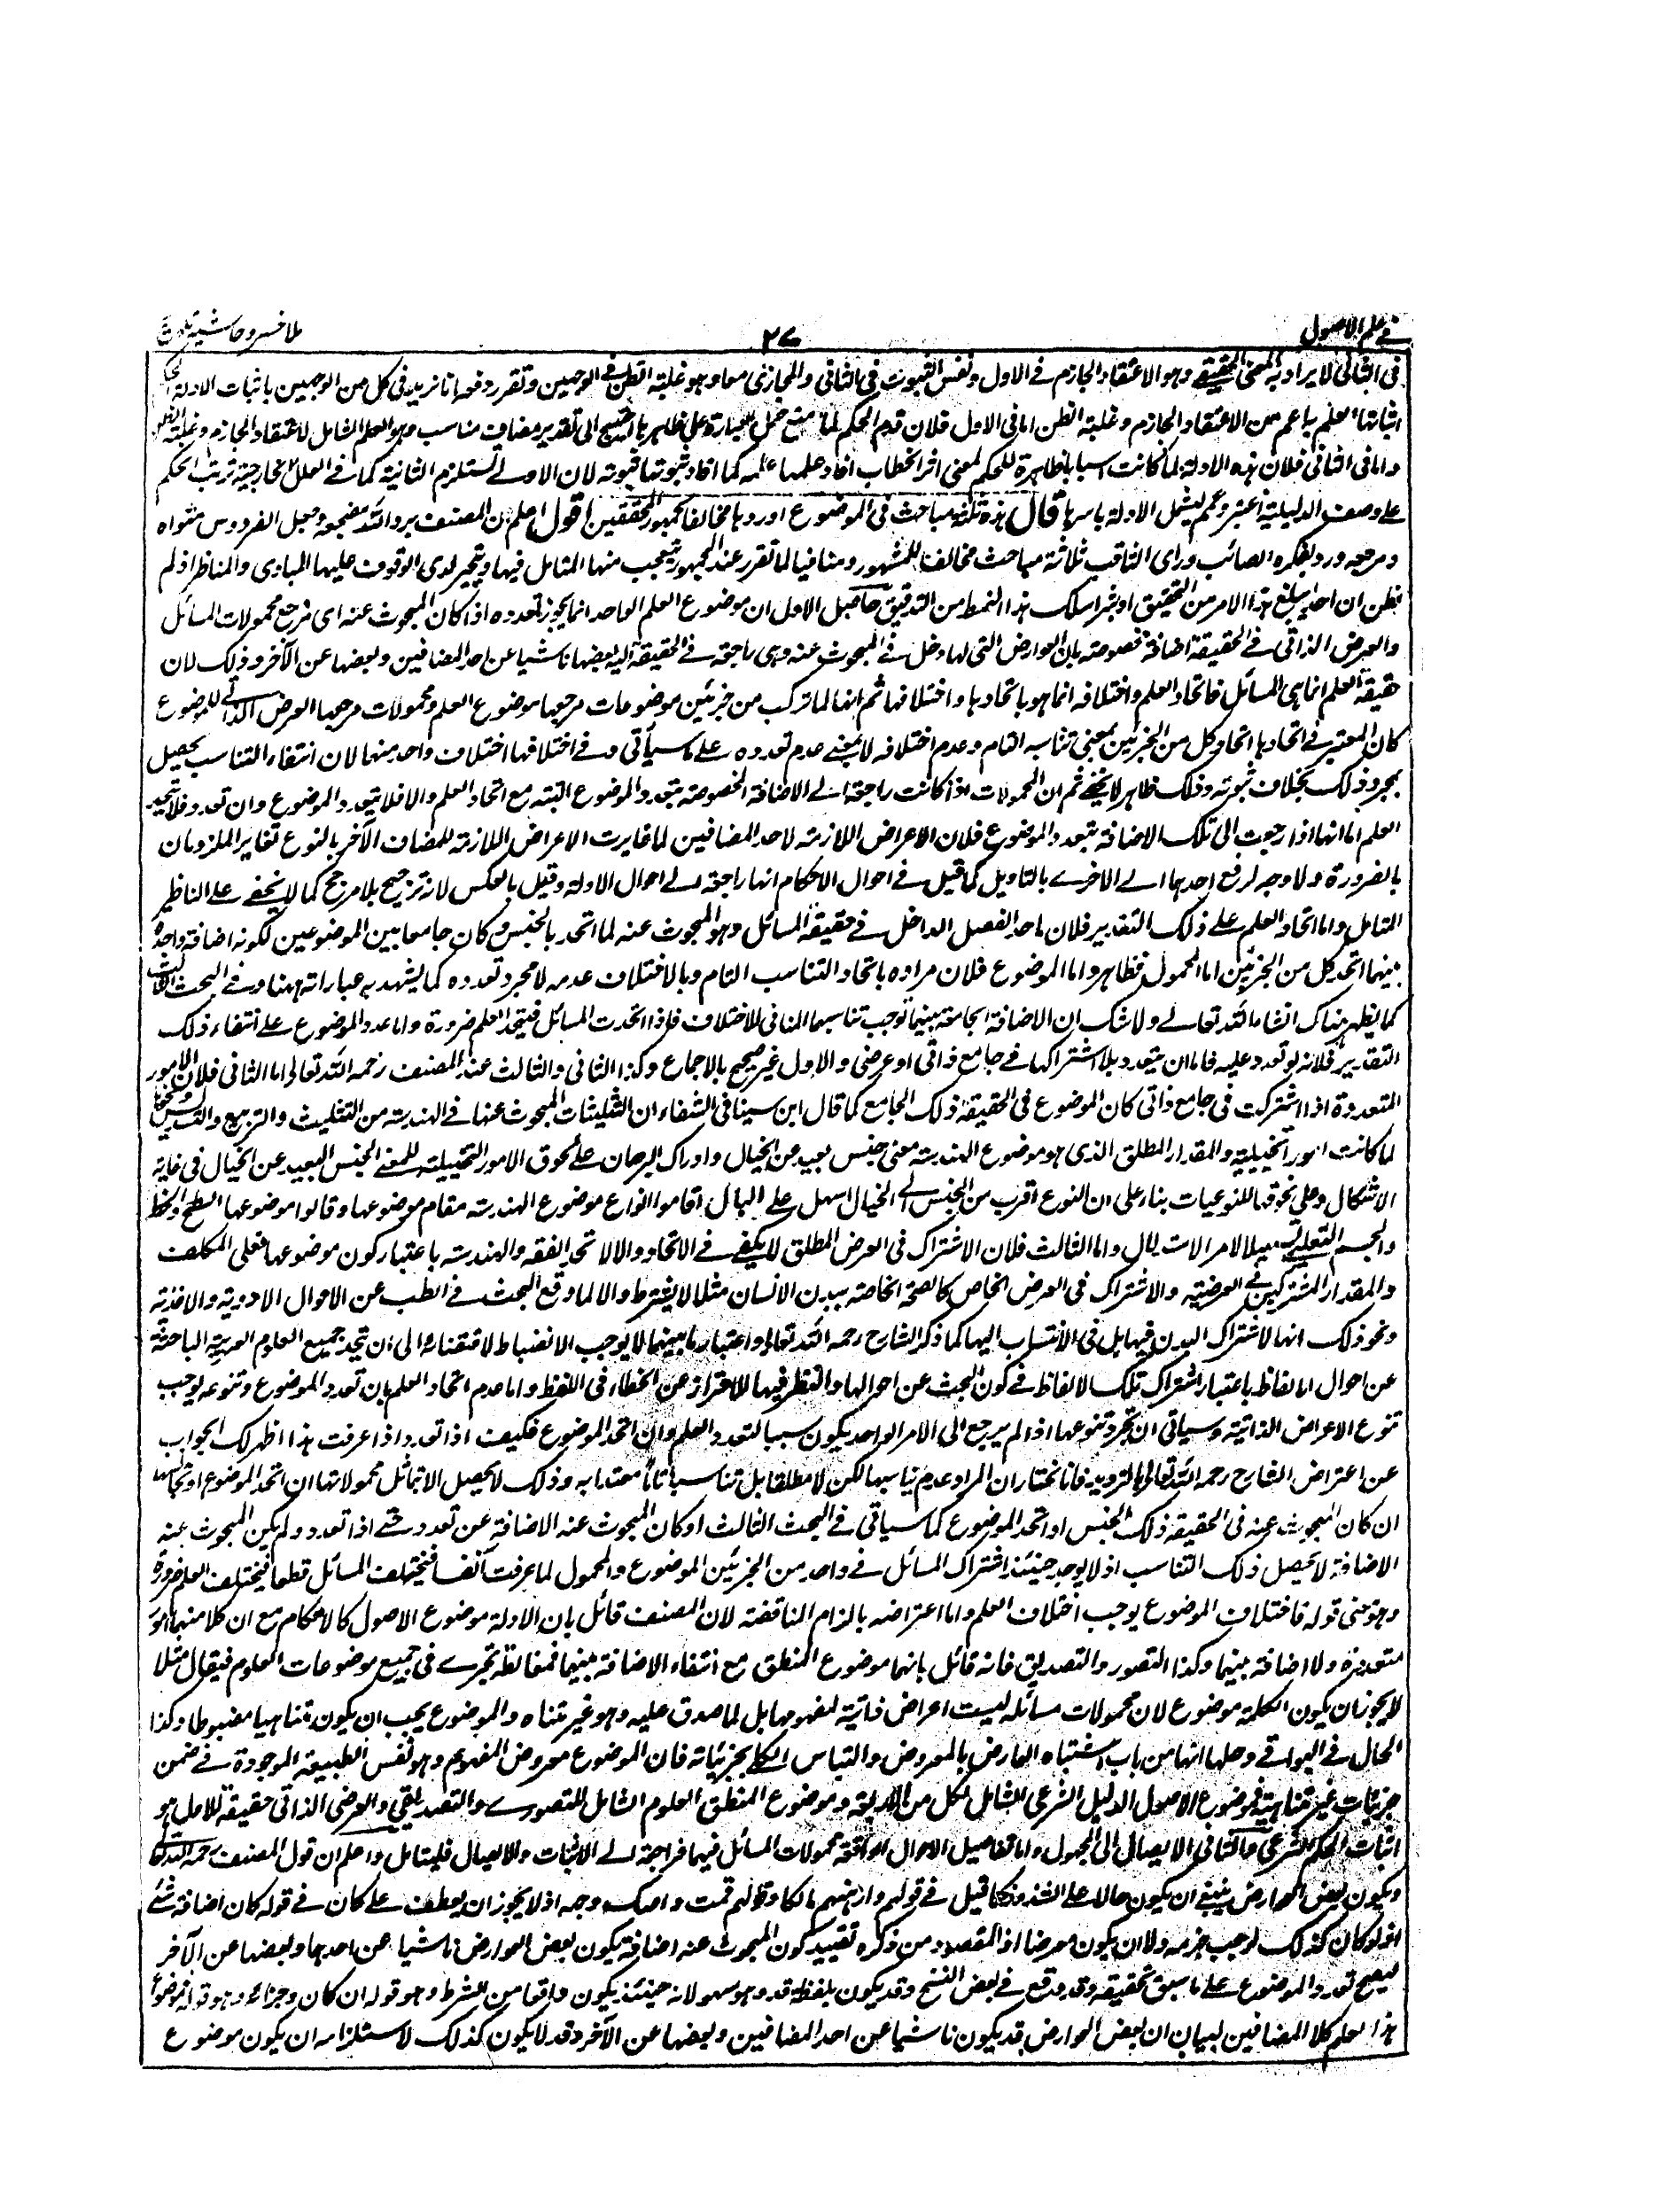 في علم الاصول
٢٧
ملا خسرو حاشية تلويح
في الثاني لا يراد به المعنى الحقيقي وهو الاعتقاد الجازم في الاول ونفس الثبوت في الثاني والمجازي معا وهو غلبة الظن في الوجهين وتقرير دفعه انا نريد في كل من الوجهين باثبات الادلة
اثباتها العلم بما عم من الاعتقاد الجازم وغلبة الظن اما في الاول فلان قدم الحكم لما منع حمل العبارة على ظاهرها احتيج الى تقدير مضاف مناسب وهو العلم الشامل للاعتقاد الجازم وغلبة الظن
واما في الثاني فلان هذه الادلة لما كانت اسبابا ظاهرة للحكم لمعنى اثر الخطاب افاد علمها علمه كما افاد ثبوتها ثبوته لان الاولى تستلزم الثانية كما في العلل الخارجية ترتب الحكم
على وصف الدليلية اعتبر وعمم ليشمل الادلة باسرها قال هذه ثلاثة مباحث في الموضوع اوردها مخالفا لجمهور المحققين اقول اعلم ان المصنف برد الله مضجعه وجعل الفردوس مثواه
ومرجعه ورد بفكره الصائب وراى الثاقب ثلاثة مباحث مخالفا للمشهور ومنافيا لما تقرر عند الجمهور يتعجب منها المتامل فيها ويتحير لدى الوقوف عليها المبادى والمناظر اذ لم
يظن ان احدا يبلغ هذا الامر من التحقيق او بشرا سلك هذا النمط من التدقيق حاصل الاول ان موضوع العلم الواحد انما يجوز تعدده اذا كان المبحوث عنه اى مرجع محمولات المسائل
والعرض الذاتي في الحقيقة اضافة مخصوصة بان العوارض التي لها دخل في المبحوث عنه وهي راجعة في الحقيقة اليه بعضها ناشيا عن احد المضافين وبعضها عن الآخر وذلك لان
حقيقة العلم انما هي المسائل فاتحاد العلم واختلافه انما هو باتحادها واختلافها ثم انها لما تركب من جزئين موضوعات مرجعها موضوع العلم ومحمولات مرجعها العرض الذاتي للموضوع
كان المعتبر في اتحادها اتحاد كل من الجزئين بمعنى تناسبه التام وعدم اختلافه لا بمعنى عدم تعدده على ما سيأتي وفي اختلافها اختلاف واحد منها لان انتفاء التناسب يحصل
بمجرد ذلك بخلاف ثبوته وذلك ظاهر لا يخفى ثم ان المحمولات اذا كانت راجعة الى الاضافة المخصوصة يتعدد الموضوع البتة مع اتحاد العلم والا فلا يتعدد الموضوع وان تعدد فلا يتحد
العلم اما انها اذا رجعت الى تلك الاضافة يتعدد الموضوع فلان الاعراض اللازمة لاحد المضافين لما غايرت الاعراض اللازمة للمضاف الآخر بالنوع تغاير الملزومان
بالضرورة ولا وجه لرفع احدهما الى الاخرى بالتاويل كما قيل في احوال الاحكام انها راجعة الى احوال الادلة وقيل بالعكس لانه ترجيح بلا مرجح كما لا يخفى على الناظر
المتامل واما اتحاد العلم على ذلك التقدير فلان ماحد الفصل الداخل في حقيقة المسائل وهو المبحوث عنه لما اتحد بالجنس وكان جامعا بين الموضوعين لكونه اضافة واحدة
بينهما اتحد كل من الجزئين اما المحمول فظاهر واما الموضوع فلان مراده باتحاد التناسب التام وبالاختلاف عدمه لا مجرد تعدده كما يشهد به عباراته ههنا وفي البحث الثالث
كما يظهر هناك انشاء الله تعالى ولا شك ان الاضافة الجامعة بينهما توجب تناسبهما المنافي للاختلاف فاذا اتحدت المسائل فيتحد العلم ضرورة واما عدد الموضوع على انتفاء ذلك
التقدير فلانه لو تعدد عليه فاما ان يتعدد بلا اشتراكها في جامع ذاتي او عرضي والاول غير صحيح بالاجماع وكذا الثاني والثالث عند المصنف رحمه الله تعالى اما الثاني فلان الامور
المتعددة اذا اشتركت في جامع ذاتي كان الموضوع في الحقيقة ذلك الجامع كما قال ابن سينا في الشفاء ان المبحوث عنها في الهندسة من التثليث والتربيع والتسديس ونحوها
لما كانت امورا تخييلية والمقدار المطلق الذى هو موضوع الهندسة معنى جنس بعيد عن الخيال وادراك البرهان على لحوق الامور التخييلية للمعنى الجنس البعيد عن الخيال في غاية
الاشكال وعلى لحوقها للنوعيات بناء على ان النوع اقرب من الجنس الى الخيال اسهل على البال اقاموا انواع موضوع الهندسة مقام موضوعها وقالوا موضوعها السطح والخط
والجسم التعليمي واما الثالث فلان الاشتراك في العرض المطلق لا يكفي في الاتحاد والا لاتحد الفقه والهندسة باعتبار كون موضوعهما فعل المكلف
والمقدار المشتركين في العرضية والاشتراك في العرض الخاص كالصحة الخاصة ببدن الانسان مثلا لا يشترط والا لما وقع البحث في الطب عن الاحوال الادوية والاغذية
ونحو ذلك انها لاشتراك البدن فيها بل في الانتساب اليها كما ذكر الشارح رحمه الله تعالى واعتبار ما بينهما لا يوجب الانضباط لافتضائه الى ان يتحد جميع العلوم العربية الباحثة
عن احوال الالفاظ باعتبار اشتراك تلك الالفاظ في كون البحث عن احوالها والنظر فيها للاحتراز عن الخطاء في اللفظ واما عدم اتحاد العلم بان تعدد الموضوع وتنوعه يوجب
تنوع الاعراض الذاتية وسياتي ان مجرد تنوعها اذا لم يرجع الى الامر الواحد يكون سببا لتعدد العلم وان اتحد الموضوع فكيف اذا تعدد واذا عرفت هذا اظهر لك الجواب
عن اعتراض الشارح رحمه الله تعالى بالترديد فانا نختار ان المراد عدم تناسبها لكن لا مطلقا بل تناسبا تاما معتدا به وذلك لا يحصل الا بتماثل محمولاتها ان اتحد الموضوع او تجانسها
ان كان المبحوث عنه في الحقيقة ذلك الجنس او اتحد الموضوع كما سياتي في البحث الثالث او كان المبحوث عنه الاضافة عن تعدد حتى اذا تعدد ولم يكن المبحوث عنه
الاضافة لا يحصل ذلك التناسب اذ لا يوجد حينئذ اشتراك المسائل في واحد من الجزئين الموضوع والمحمول لما عرفت آنفا فيختلف المسائل قطعا فيختلف العلم ضرورة
وهو معنى قوله فاختلاف الموضوع يوجب اختلاف العلم واما اعتراضه بالزام المناقضة لان المصنف قائل بان الادلة موضوع الاصول كالاحكام مع ان كلا منهما امور
متعددة ولا اضافة بينهما وكذا التصور والتصديق فانه قائل بانهما موضوع المنطق مع انتفاء الاضافة بينهما فمغالطة تجرى في جميع موضوعات العلوم فيقال مثلا
لا يجوز ان يكون الكلمة موضوع لان محمولات مسائله ليست اعراض ذاتية لمفهومها بل لما صدق عليه وهو غير متناه والموضوع يجب ان يكون متناهيا مضبوطا وكذا
الحال في البواقي وحلها انها من باب اشتباه العارض بالمعروض والتباس الكلي بجزئياته فان الموضوع معروض المفهوم وهو نفس الطبيعة الموجودة في ضمن
جزئيات غير متناهية فموضوع الاصول الدليل الشرعي الشامل لكل من الاربعة وموضوع المنطق المعلوم الشامل للتصوري والتصديقي والعرضي الذاتي حقيقة للاول هو
اثبات الحكم الشرعي وللثاني الايصال الى المجهول واما تفاصيل الاحوال الواقعة محمولات المسائل فيهما فراجعة الى الاثبات والايصال فليتامل واعلم ان قول المصنف رحمه الله تعالى
ويكون بعض العوارض ينبغي ان يكون حالا على الشذوذ كما قيل في قولهم وارهنهم مالكا وقولهم قمت واصك وجهه اذ لا يجوز ان يعطف على كان في قوله كان اضافة شئ
اذ لو كان كذلك لوجب جزمه ولا ان يكون معرضا اذ المقصود من ذكره تقييد كون المبحوث عنه اضافة بكون بعض العوارض ناشيا عن احدهما وبعضها عن الآخر
ليصح تعدد الموضوع على ما سبق تحقيقه وقد وقع في بعض النسخ وقد يكون بلفظة قد وهو سهو لانه حينئذ يكون واقعا من الشرط وهو قوله ان كان وجزائه وهو قوله فموضوع
هذا العلم كلا المضافين لبيان ان بعض العوارض قد يكون ناشيا عن احد المضافين وبعضها عن الآخر وقد لا يكون كذلك لاستلزامه ان يكون موضوع